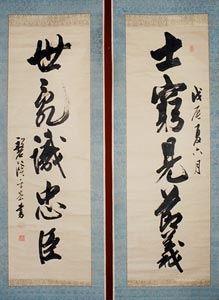 士窮見節義
戊辰夏六月
世亂識忠臣